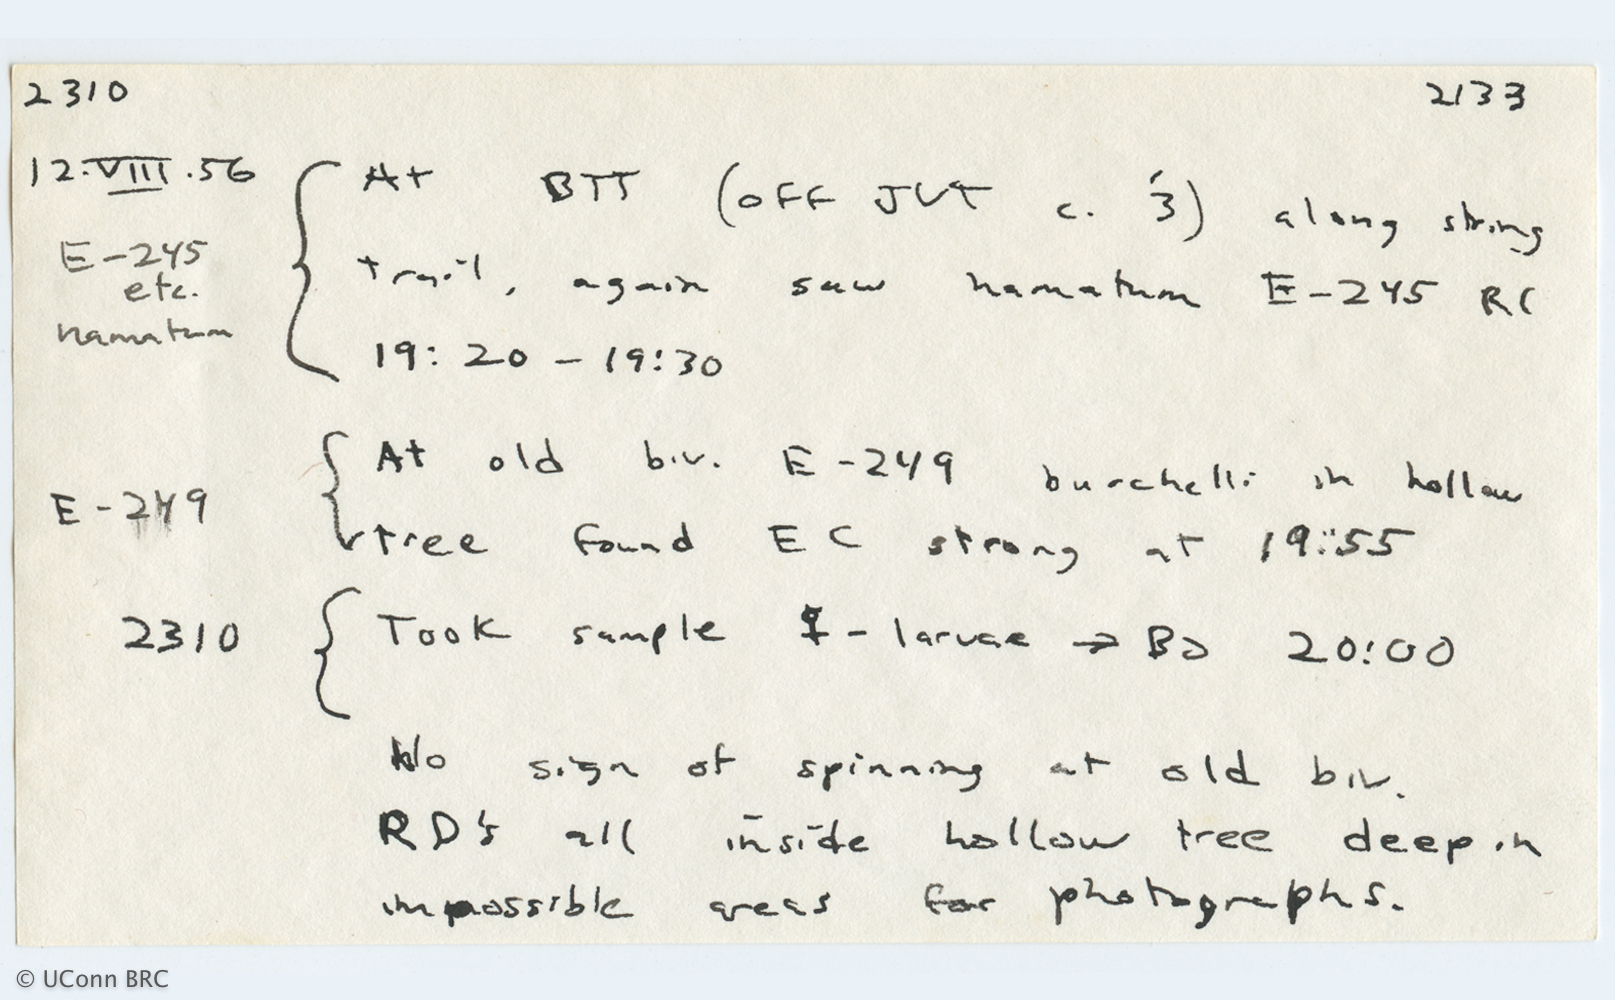 2310 2133
12.VIII.56 At BTT (off JVT c. 3) along string
E-245 trail, again saw hamatum E-245 RC
etc.
hamatum 19:20 - 19:30
At old biv. E-249 burchelli in hollow
E-249 tree found EC strong at 19:55
2310 Took sample - larvae → 20:00
No sign of spinning at old biv.
RD's all inside hollow tree deep in
impossible areas for photographs.
© UConn BRC